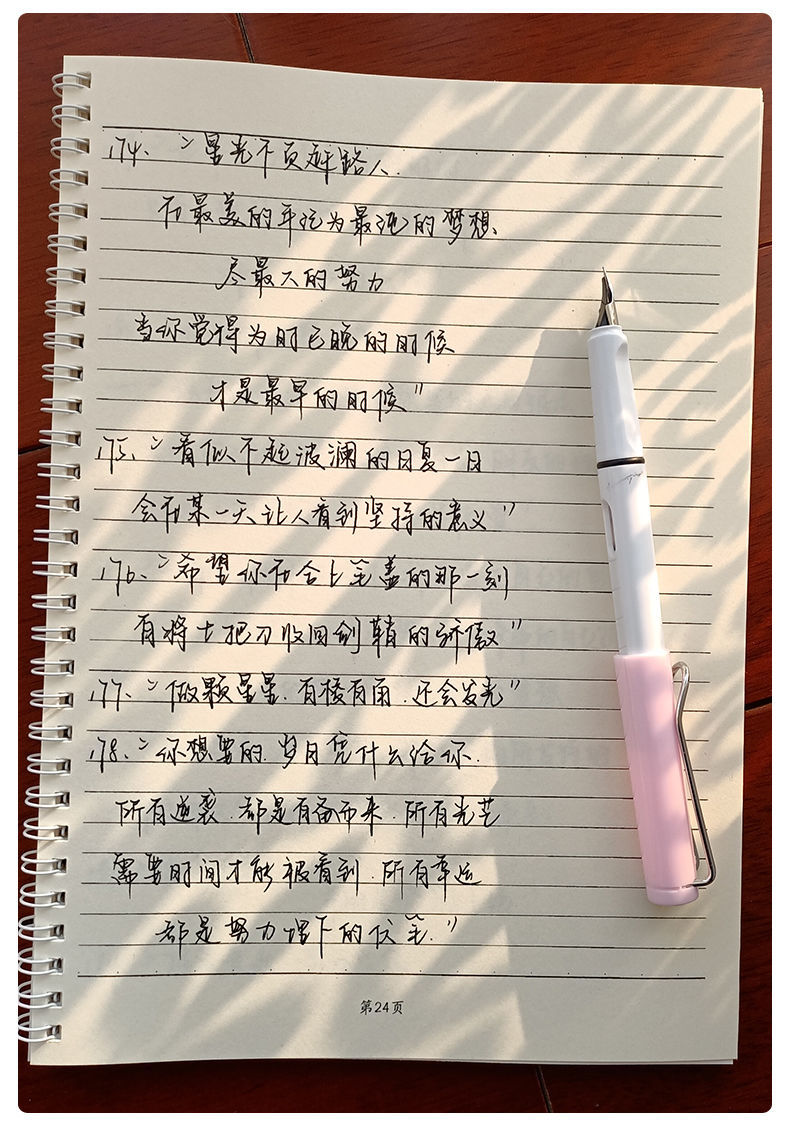 174、“星光不负赶路人.
在最美的年纪为最纯的梦想、
尽最大的努力
当你觉得为时已晚的时候
才是最早的时候”
175、“看似不起波澜的日复一日
会在某一天让人看到坚持的意义”
176、“希望你在合上笔盖的那一刻
有将士把刀收回剑鞘的骄傲”
177、“做颗星星.有棱有角.还会发光”
178、“你想要的.岁月凭什么给你.
所有逆袭.都是有备而来.所有光芒
需要时间才能被看到.所有幸运
都是努力埋下的伏笔.”
第24页